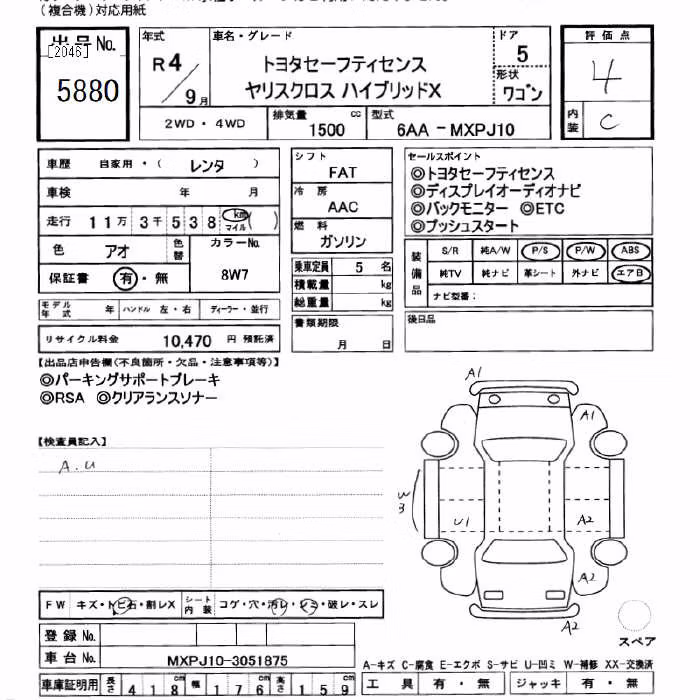 (複合機)対応用紙
出品No.
[2046]
5880
年式
R4/9月
車名・グレード
トヨタセーフティセンス
ヤリスクロス ハイブリッドX
ドア
5
形状
ワゴン
評価点
4
内装
C
2WD・4WD
排気量 cc
1500
型式
6AA-MXPJ10
車歴 自家用・(レンタ)
車検 年 月
走行 11万3千538 km マイル ( )
色 アオ
色替
カラーNo.
8W7
保証書 有・無
モデル年式 年 ハンドル 左・右 ディーラー・並行
リサイクル料金 10,470 円 預託済
シフト
FAT
冷房
AAC
燃料
ガソリン
乗車定員 5 名
積載量 kg
総重量 kg
書類期限
月 日
セールスポイント
◎トヨタセーフティセンス
◎ディスプレイオーディオナビ
◎バックモニター ◎ETC
◎プッシュスタート
装備品
S/R 純A/W P/S P/W ABS
純TV 純ナビ 革シート 外ナビ エアB
ナビ型番:
後日品
【出品店申告欄(不良箇所・欠品・注意事項等)】
◎パーキングサポートブレーキ
◎RSA ◎クリアランスソナー
【検査員記入】
A.U
A1
A1
W3
U1
A2
A2
A2
スペア
FW キズ・トビ石・割レX
シート内装 コゲ・穴・汚レ・シミ・破レ・スレ
登録No.
車台No. MXPJ10-3051875
車庫証明用 長さ 418cm 幅 176cm 高さ 159cm
A-キズ C-腐食 E-エクボ S-サビ U-凹ミ W-補修 XX-交換済
工具 有・無 ジャッキ 有・無